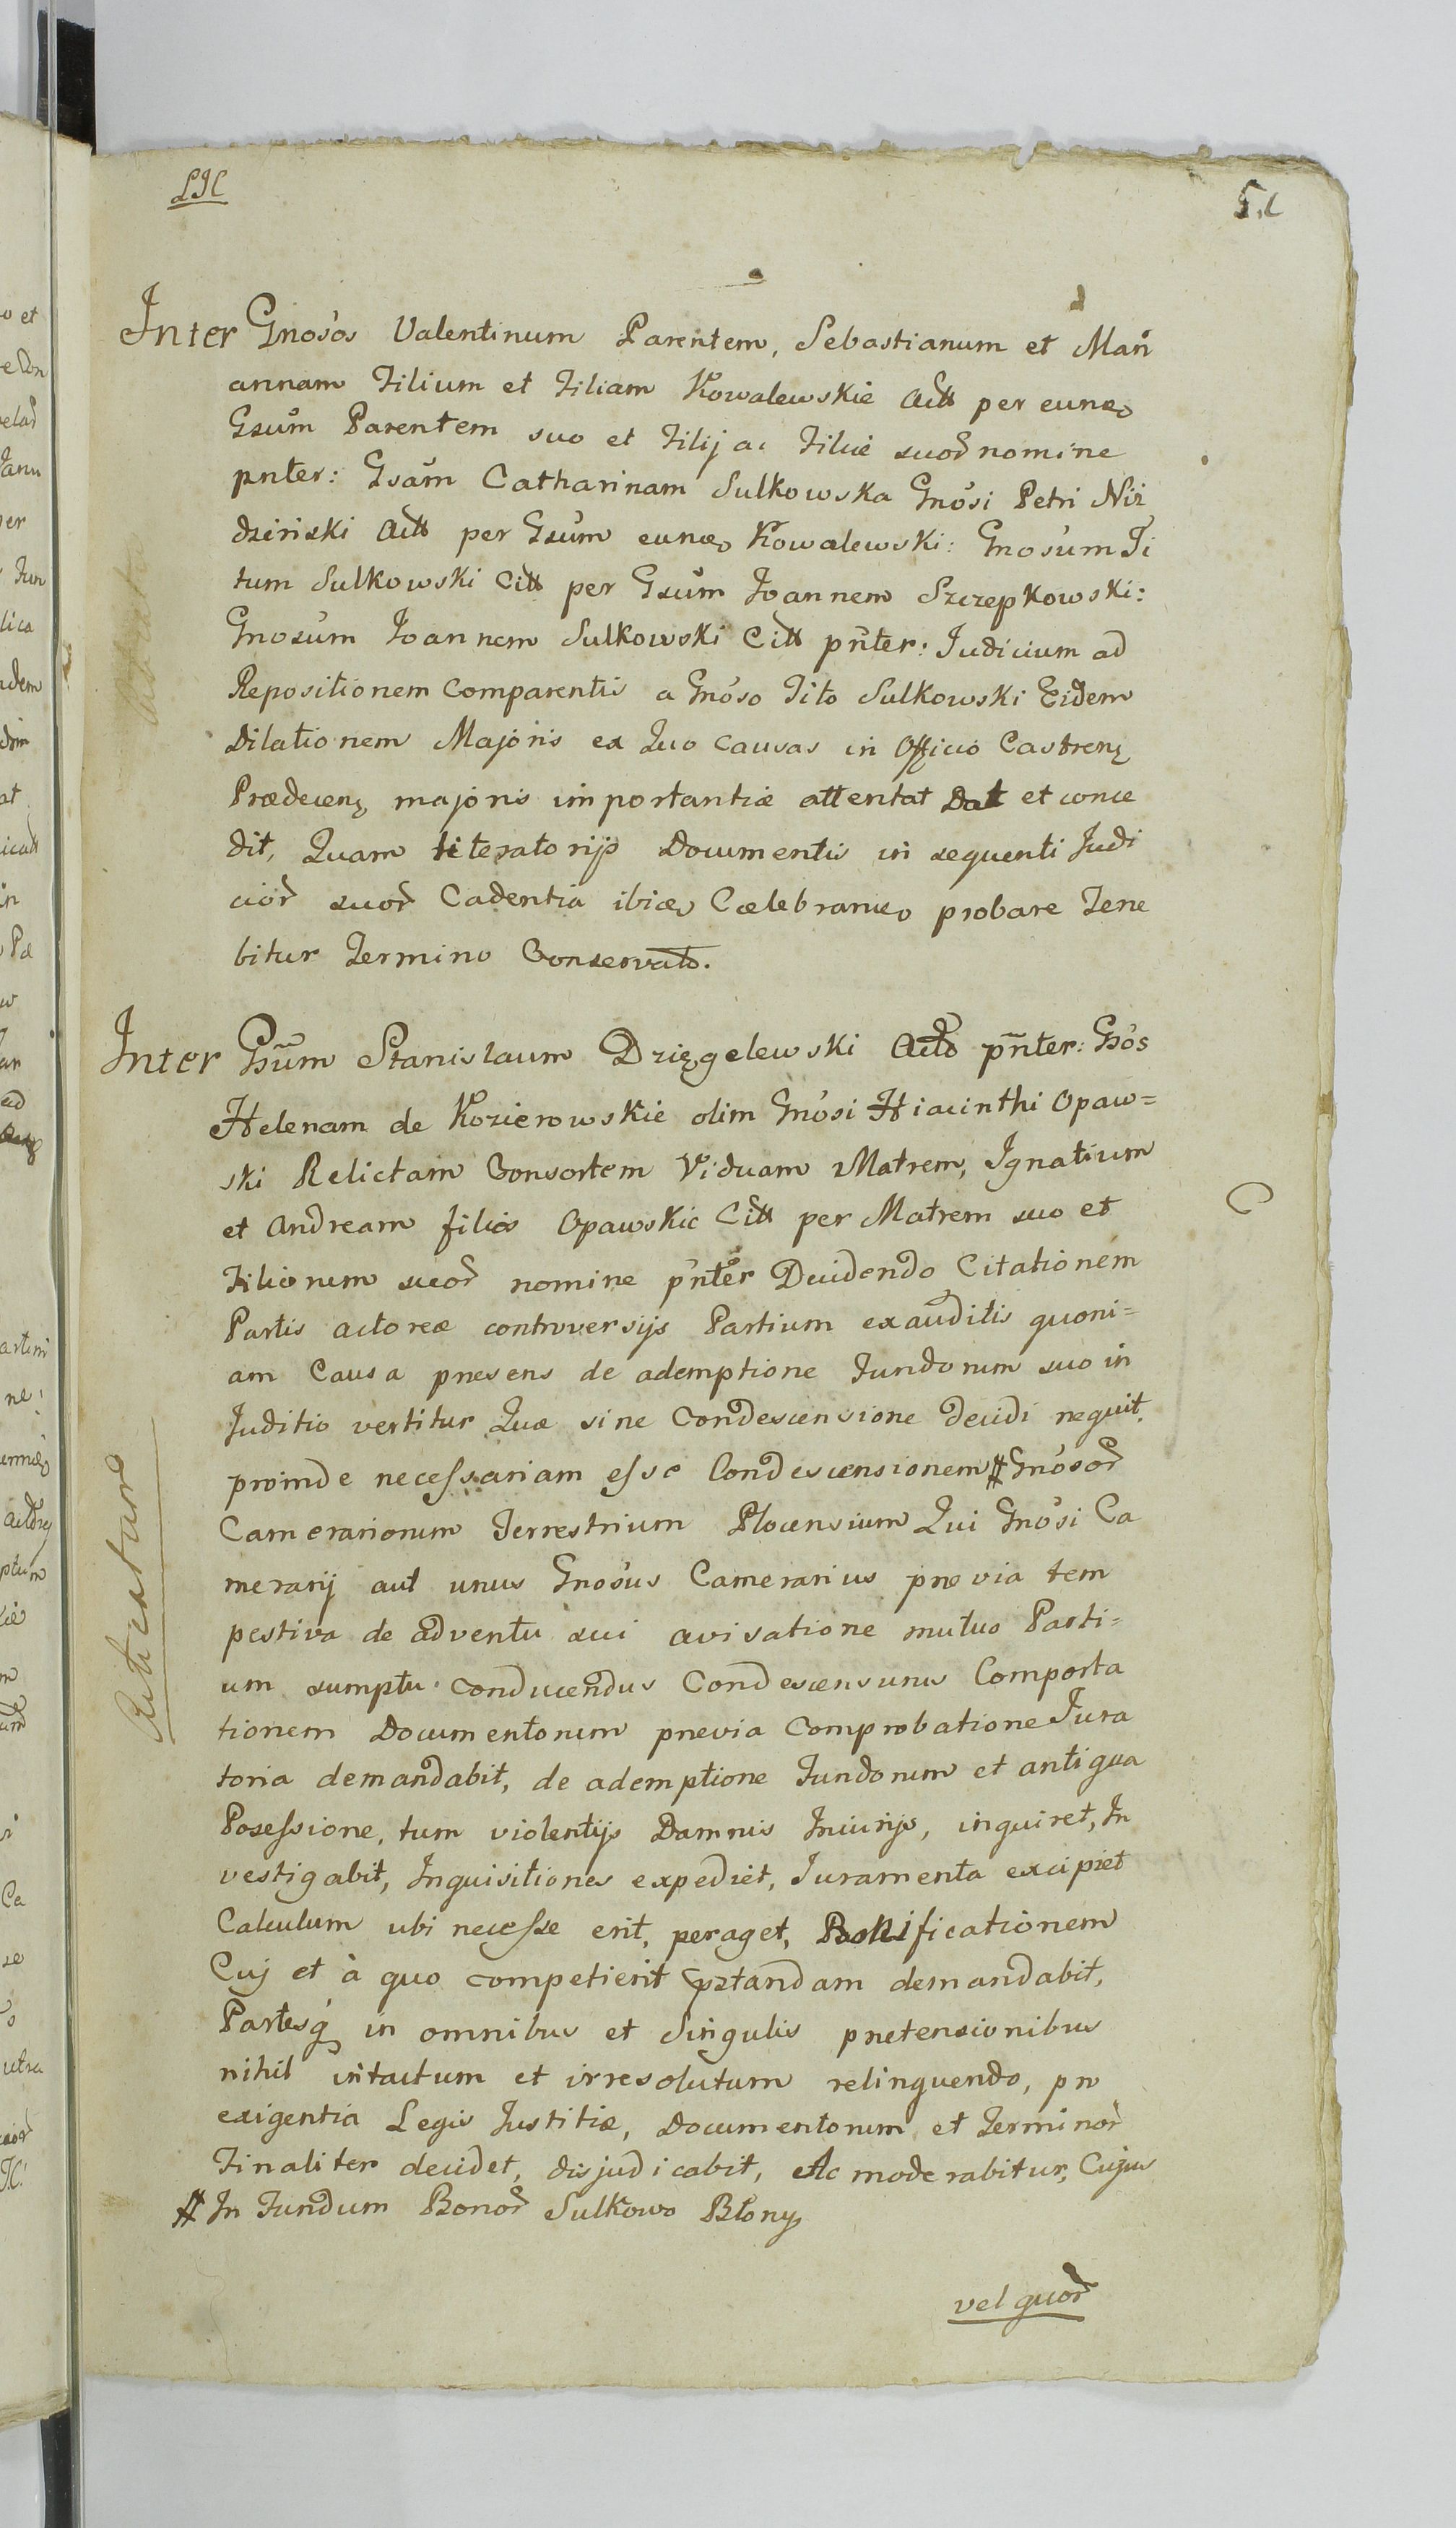 LJC
Inter Gnosos Valentinum Parentem, Sebastianum et Mari
annam Filium et Filiam Kowalewskie Actt per eund
Gsum Parentem suo et Filij ac Filiæ suor nomine
pnter: Gsam Catharinam Sulkowska Gnosi Petri Niz
dzinski Actt per Gsum eund Kowalewski: Gnosum Ti
tum Sulkowski Citt per Gsum Joannem Szczepkowski:
Gnosum Joannem Sulkowski Citt pnter: Judicium ad
Repositionem Comparentis a Gnoso Tito Sulkowski Eidem
Dilationem Majoris ex Quo causas in Officio Castren
Prædecen majoris importantiæ attentat Dat et conce
dit, Quam literatorijs Documentis in sequenti Judi
cior suor Cadentia ibid Cælebrand probare Tene
bitur Termino Conservato.
Inter Gsum Stanislaum Dzięgelewski Act pnter: Gsos
Helenam de Kozierowskie olim Gnosi Hiacinthi Opaw=
ski Relictam Consortem Viduam Matrem, Ignatium
et Andream filios Opawskie Citt per Matrem suo et
Filiorum suor nomine pnter Decidendo Citationem
Partis actoreæ controversijs Partium exauditis quoni=
am Causa præsens de ademptione Fundorum suo in
Juditio vertitur Quæ sine Condescensione decidi nequit,
proinde necessariam esse Condescensionem # Gnosor
Camerariorum Terrestrium Plocensium Qui Gnosi Ca
merarij aut unus Gnosus Camerarius prævia tem
pestiva de adventu sui avisatione mutuo Parti=
um sumptu conducendus Condescensurus Comporta
tionem Documentorum prævia Comprobatione Jura
toria demandabit, de ademptione Fundorum et antiqua
Posessione, tum violentijs Damnis Iniurijs, inquiret, In
vestigabit, Inquisitiones expediet, Juramenta excipiet
Calculum ubi necesse erit, peraget, Bonificationem
Cuj et à quo competierit præstandam demandabit,
Partesq in omnibus et Singulis prætensionibus
nihil intactum et irresolutum relinquendo, pro
exigentia Legis Justitiæ, Documentorum et Terminor
Finaliter decidet, disjudicabit, Ac moderabitur, Cujus
# In Fundum Bonor Sulkowo Błony
vel quor